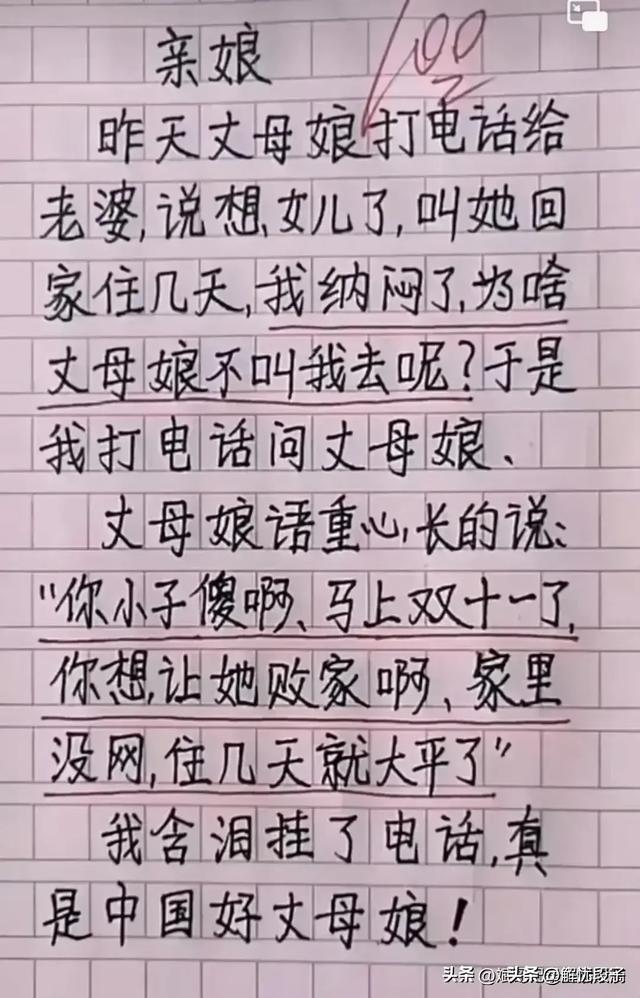 100
亲娘
昨天丈母娘打电话给
老婆,说想女儿了,叫她回
家住几天,我纳闷了,为啥
丈母娘不叫我去呢?于是
我打电话问丈母娘、
丈母娘语重心长的说:
“你小子傻啊、马上双十一了,
你想让她败家啊、家里
没网,住几天就大平了”
我含泪挂了电话,真
是中国好丈母娘!
头条 @解忧段子